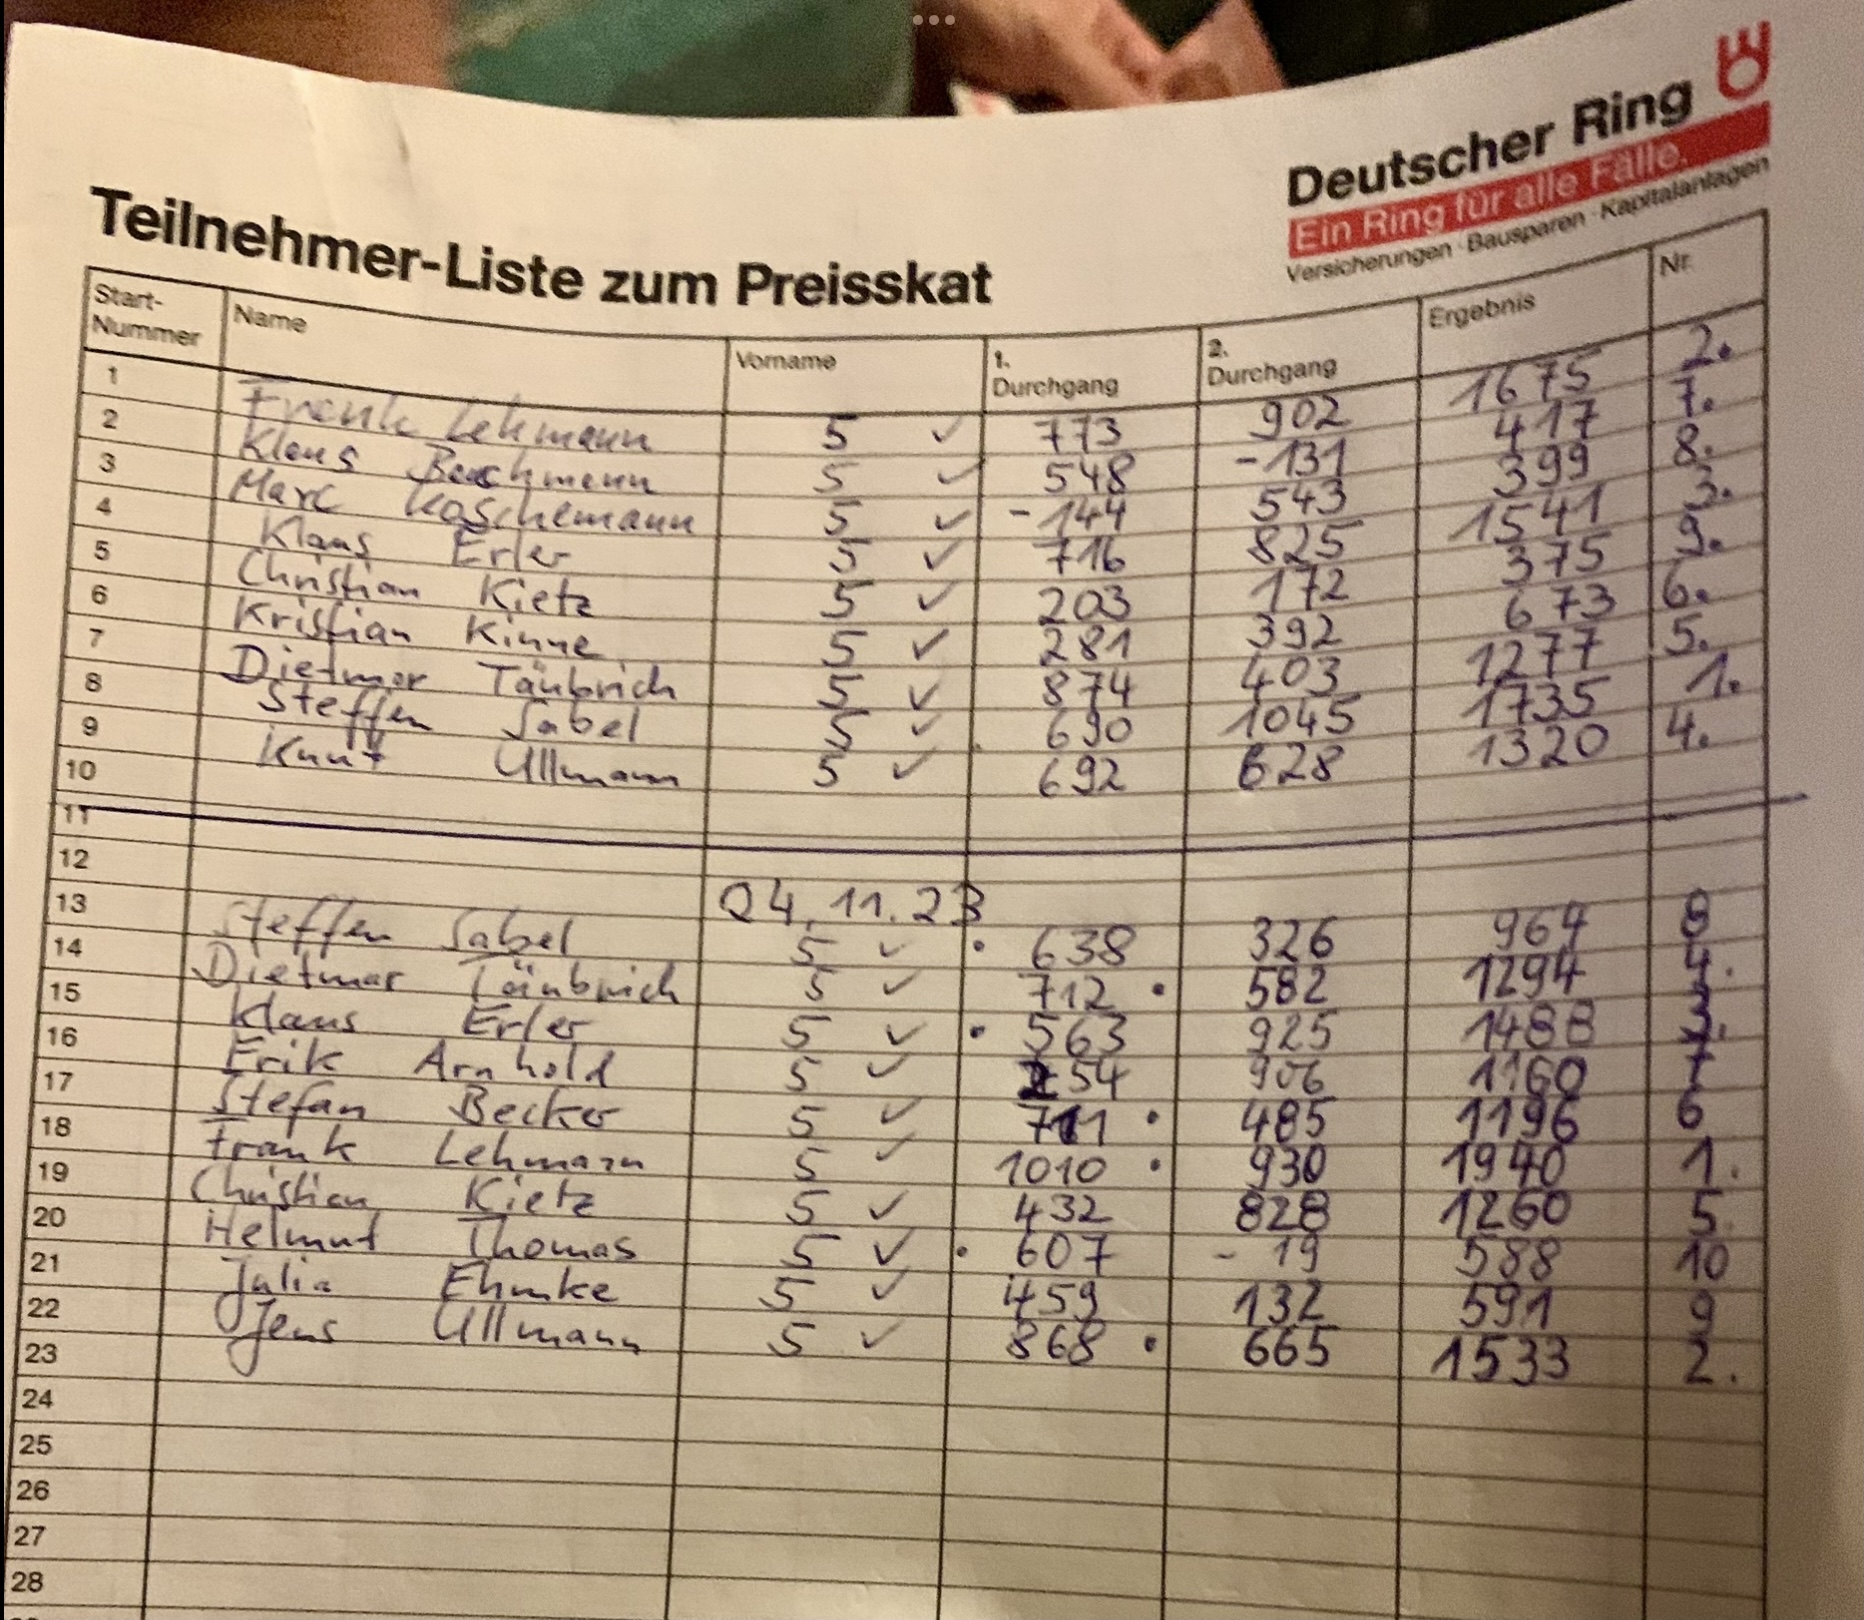 Deutscher Ring
Ein Ring für alle Fälle.
Versicherungen · Bausparen · Kapitalanlagen
Teilnehmer-Liste zum Preisskat
Start-Nummer Name Vorname 1. Durchgang 2. Durchgang Ergebnis Nr.
1 Frank Lehmann 5 ✓ 773 902 1675 2.
2 Klaus Bachmann 5 ✓ 548 -131 417 7.
3 Marc Koschemann 5 ✓ -144 543 399 8.
4 Klaus Erler 5 ✓ 716 825 1541 3.
5 Christian Kietz 5 ✓ 203 172 375 9.
6 Kristian Kinne 5 ✓ 281 392 673 6.
7 Dietmar Täubrich 5 ✓ 874 403 1277 5.
8 Steffen Sabel 5 ✓ 690 1045 1735 1.
9 Knut Ullmann 5 ✓ 692 628 1320 4.
10
11
12
04.11.23
13 Steffen Sabel 5 ✓ • 638 326 964 8
14 Dietmar Täubrich 5 ✓ 712 • 582 1294 4.
15 Klaus Erler 5 ✓ • 563 925 1488 3.
16 Erik Arnhold 5 ✓ 254 906 1160 7
17 Stefan Becker 5 ✓ 711 • 485 1196 6
18 Frank Lehmann 5 ✓ 1010 • 930 1940 1.
19 Christian Kietz 5 ✓ 432 828 1260 5.
20 Helmut Thomas 5 ✓ • 607 - 19 588 10
21 Julia Ehmke 5 ✓ 459 132 591 9
22 Jens Ullmann 5 ✓ 868 • 665 1533 2.
23
24
25
26
27
28